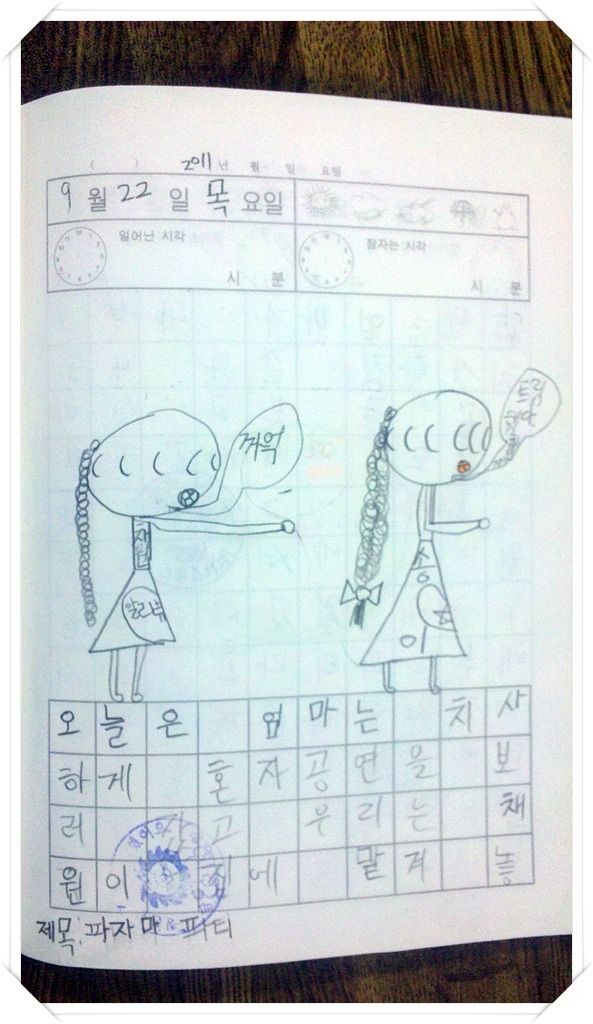 2011년 월 일 요일
9 월 22 일 목 요일
일어난 시각
시 분
잠자는 시각
시 분
꺼억
트림
재원
알라뷰
송이
오늘은 엄마는 치사
하게 혼자 공연을 보
러 가고 우리는 채
원이 집에 맡겨 놓
제목: 파자마 파티